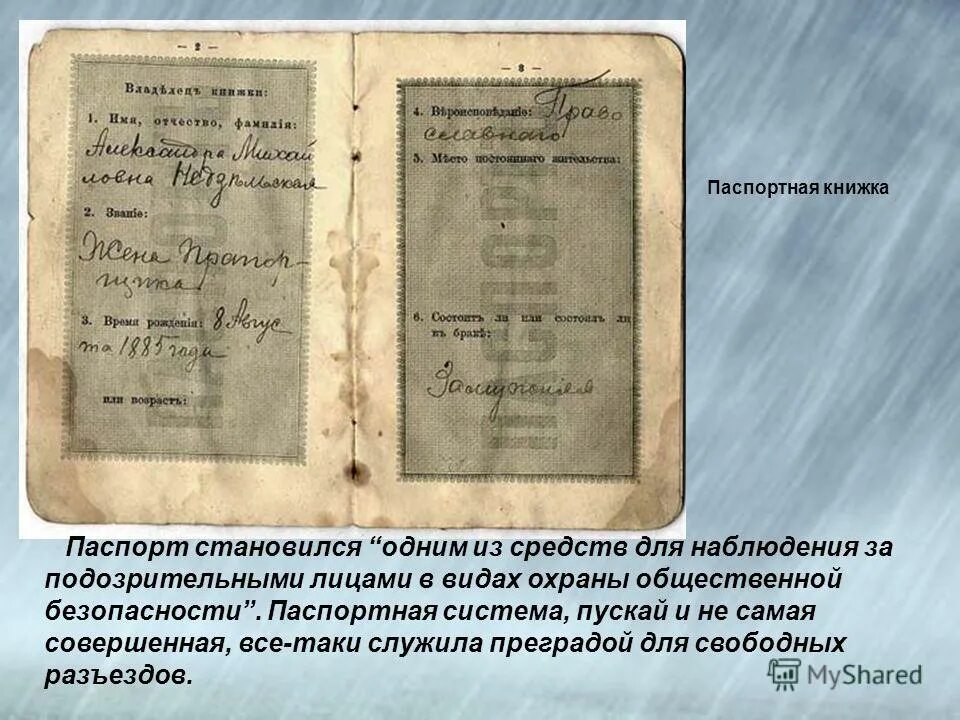 — 2 —
Владѣлецъ книжки:
1. Имя, отчество, фамилія:
Александра Михай
ловна
2. Званіе:
Жена Прапор-
щика
3. Время рожденія: 8 Авгус
та 1885 года
или возрастъ:
— 3 —
4. Вѣроисповѣданіе: Право
славнаго
5. Мѣсто постояннаго жительства:
6. Состоитъ ли или состоялъ ли
въ бракѣ:
Замужняя
ПАСПОРТ
Паспортная книжка
Паспорт становился “одним из средств для наблюдения за
подозрительными лицами в видах охраны общественной
безопасности”. Паспортная система, пускай и не самая
совершенная, все-таки служила преградой для свободных
разъездов.
MyShared